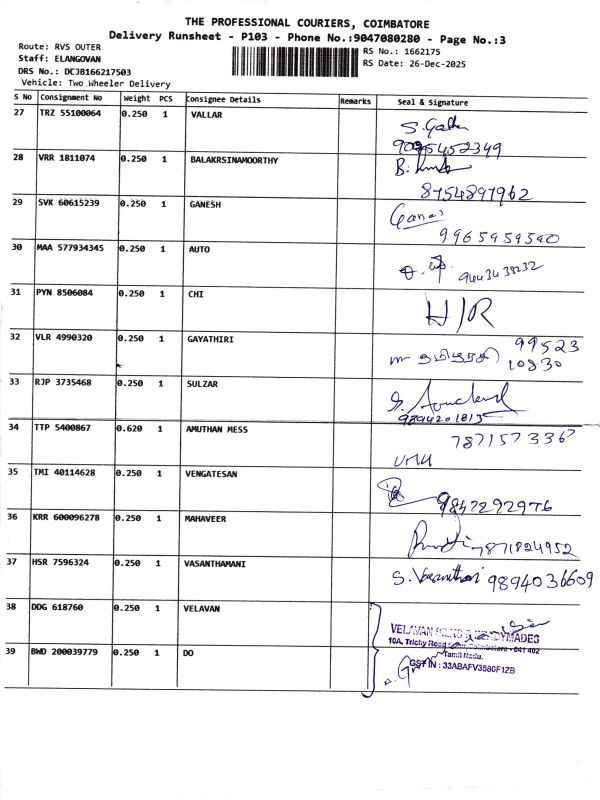 THE PROFESSIONAL COURIERS, COIMBATORE
Delivery Runsheet - P103 - Phone No.:9047080280 - Page No.:3
Route: RVS OUTER
RS No.: 1662175
Staff: ELANGOVAN
RS Date: 26-Dec-2025
DRS No.: DCJB166217503
Vehicle: Two Wheeler Delivery
S No Consignment No Weight PCS Consignee Details Remarks Seal & Signature
27 TRZ 55100064 0.250 1 VALLAR
28 VRR 1811074 0.250 1 BALAKRSINAMOORTHY
8754897962
29 SVK 60615239 0.250 1 GANESH
9965959590
30 MAA 577934345 0.250 1 AUTO
31 PYN 8506084 0.250 1 CHI
H/R
32 VLR 4990320 0.250 1 GAYATHIRI
99523
10830
33 RJP 3735468 0.250 1 SULZAR
9894201815
34 TTP 5400867 0.620 1 AMUTHAN MESS
7871573367
35 TMI 40114628 0.250 1 VENGATESAN
9847292976
36 KRR 600096278 0.250 1 MAHAVEER
7871824952
37 HSR 7596324 0.250 1 VASANTHAMANI
9894036609
38 DDG 618760 0.250 1 VELAVAN
VELAVAN
10A, Trichy Road Coimbatore - 641 402
Tamil Nadu.
GST IN : 33ABAFV3580F1ZB
39 BWD 200039779 0.250 1 DO